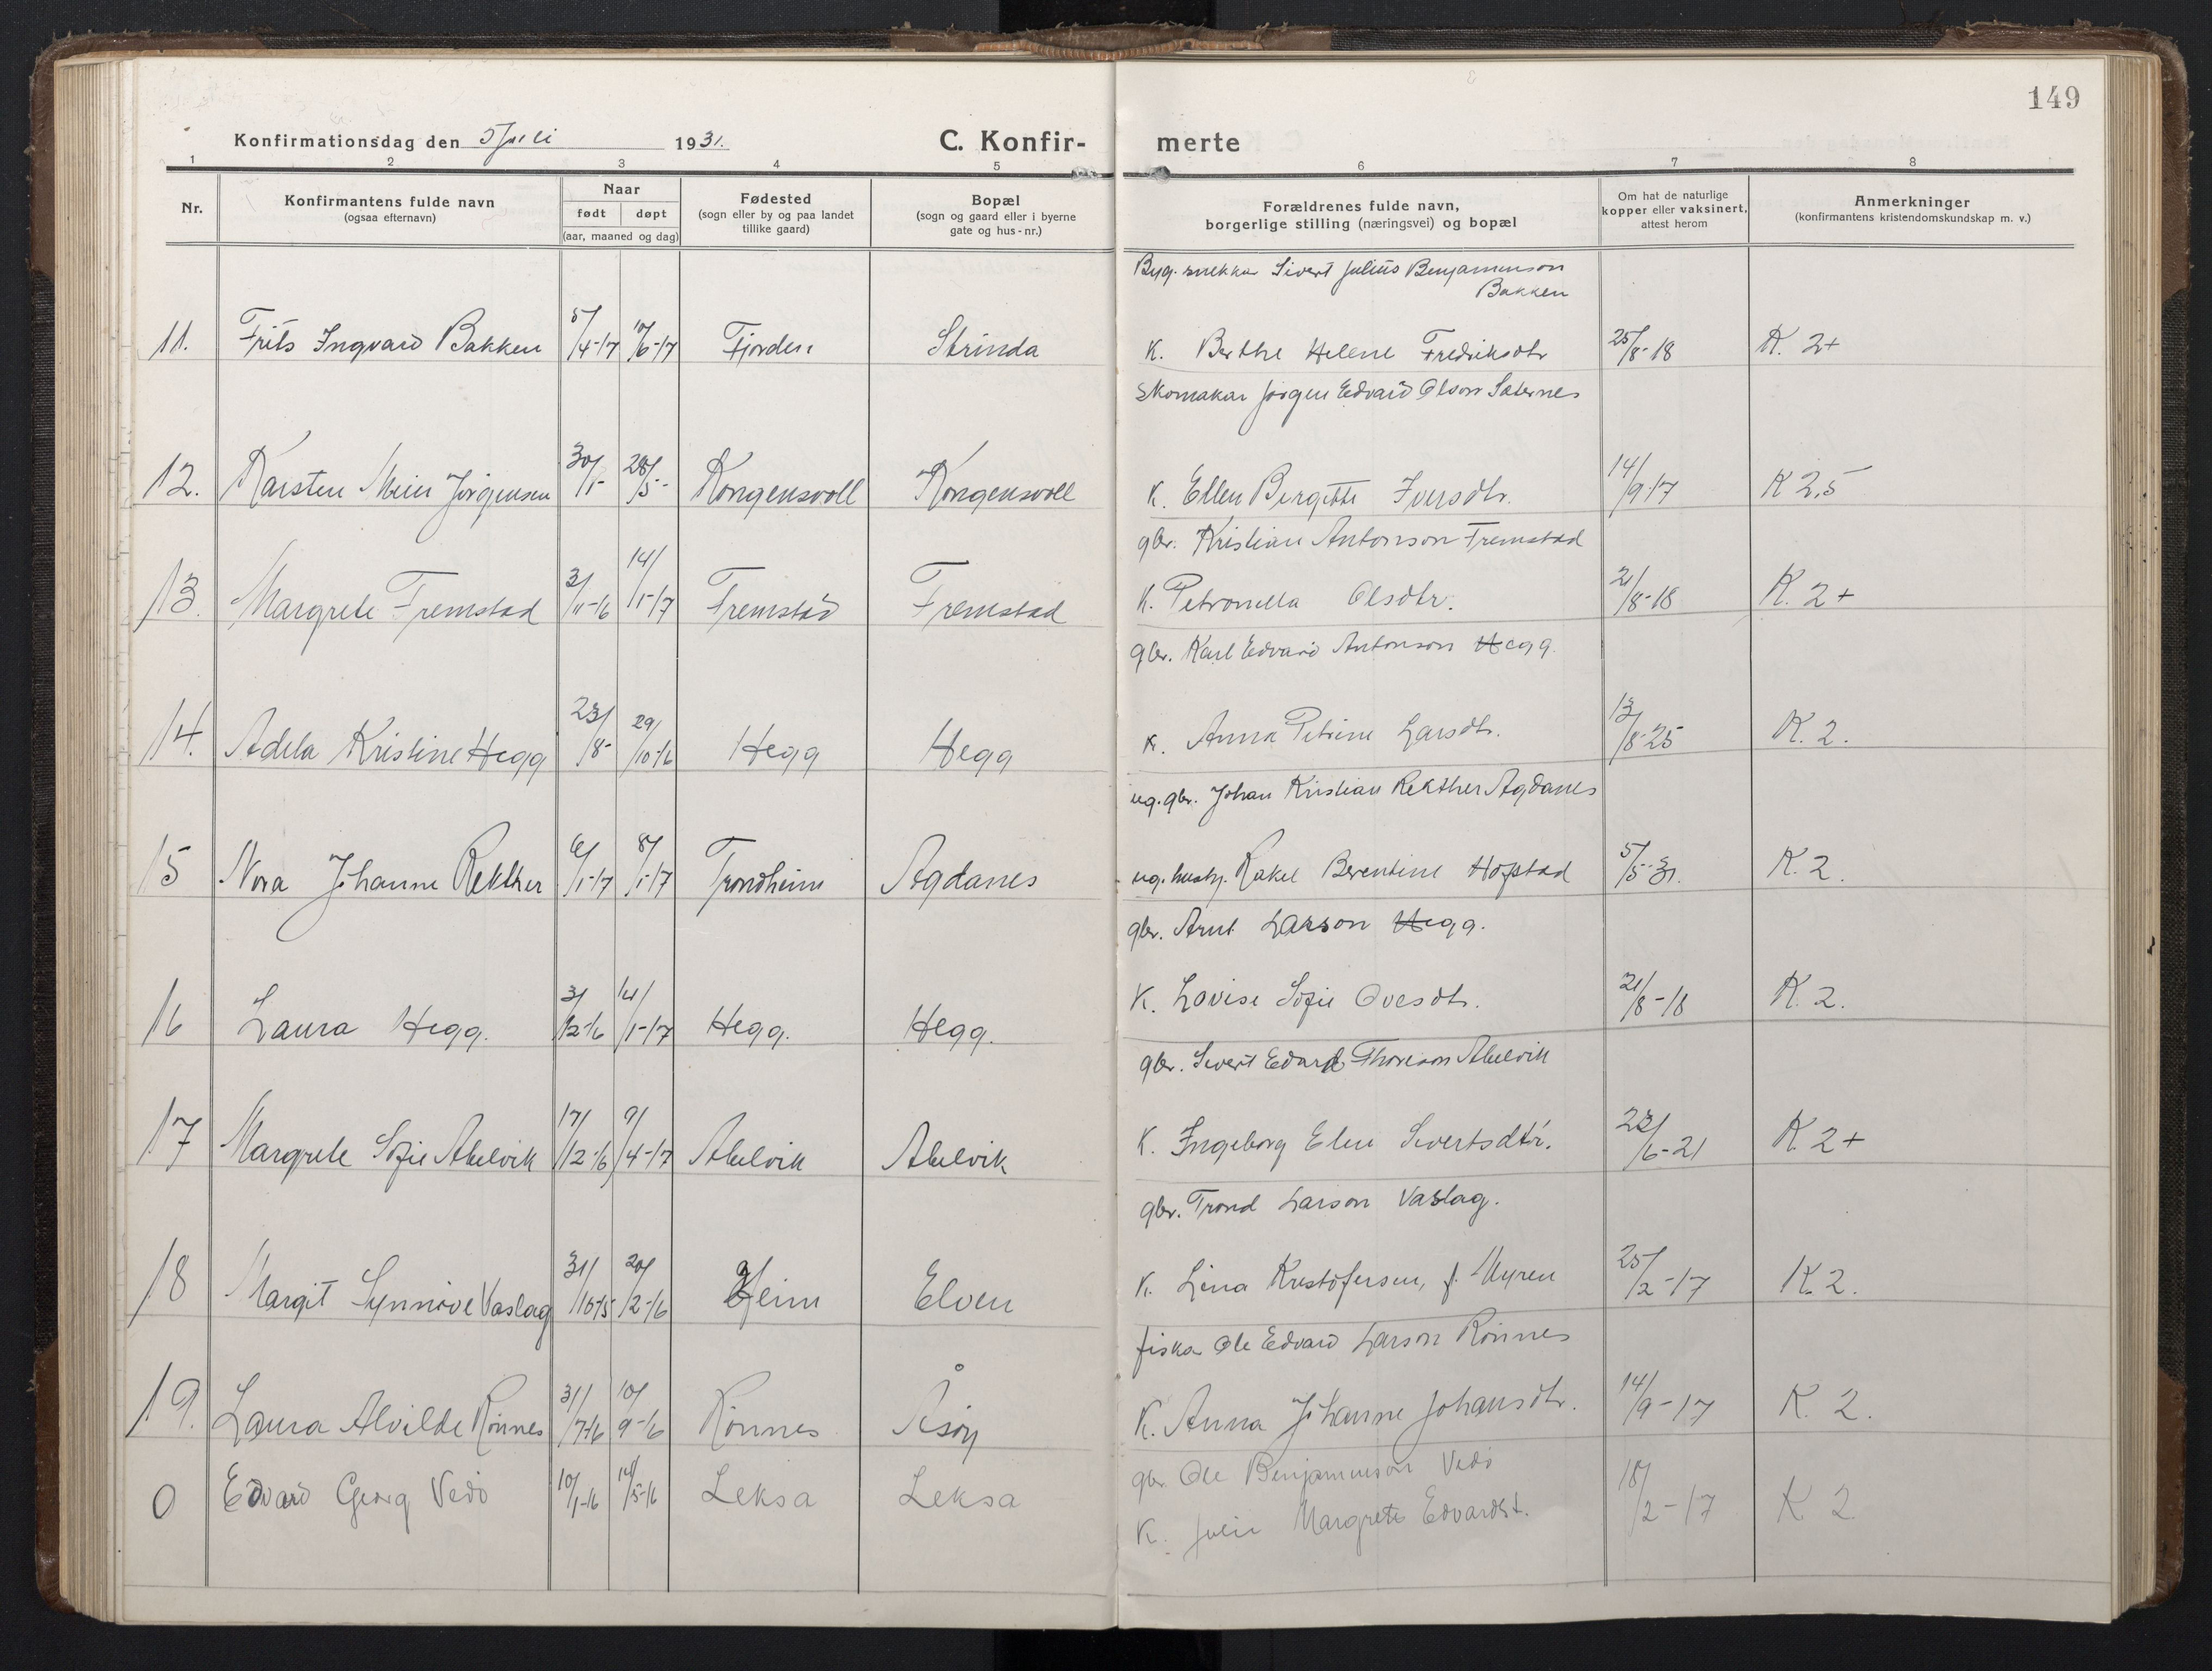 149
Konfirmationsdag den 5 Juli 1931.
C. Konfir- merte
1 2 3 4 5 6 7 8
Nr.
Konfirmantens fulde navn
(ogsaa efternavn)
Naar
født døpt
(aar, maaned og dag)
Fødested
(sogn eller by og paa landet
tillike gaard)
Bopæl
(sogn og gaard eller i byerne
gate og hus-nr.)
Forældrenes fulde navn,
borgerlige stilling (næringsvei) og bopæl
Om hat de naturlige
kopper eller vaksinert,
attest herom
Anmerkninger
(konfirmantens kristendomskundskap m. v.)
Byg. snekkar Sivert Julius Benjaminson
Bakken
11. Frits Ingvard Bakken 5/4-17 10/6-17 Fjorden Strinda K. Berthe Helene Fredriksdtr 25/8-18 K. 2+
Skomakar Jørgen Edvard Olson Sæternes
12. Karsten Meier Jørgensen 30/1- 28/5- Kongensvoll Kongensvoll K. Ellen Birgitte Iversdtr. 14/9-17 K 2,5
gbr. Kristian Antonson Fremstad
13. Margrete Fremstad 3/11-16 14/1-17 Fremstad Fremstad K. Petronella Olsdtr. 21/8-18 K. 2+
gbr. Karl Edvard Antonson Hegg.
14. Adela Kristine Hegg 23/8- 29/10-16 Hegg Hegg K. Anna Petrine Larsdtr. 13/8-25 K. 2.
ug. gbr. Johan Kristian Rekther Agdanes
15 Nora Johanne Rekther 6/1-17 8/1-17 Trondheim Agdanes ug. hush. Rakel Berentine Hofstad 5/5-31. K. 2.
gbr. Arnt Larson Hegg.
16 Laura Hegg. 3/12-16 14/1-17 Hegg. Hegg. K. Lovise Sofie Ovesdtr. 21/8-18 K. 2.
gbr. Sivert Edard Thoreson Abelvik
17 Margrete Sofie Abelvik 17/12-16 9/4-17 Abelvik Abelvik K. Ingeborg Elen Sivertsdtr. 23/6-21 K. 2+
gbr. Trond Larson Vaslag.
18 Margit Synnøve Vaslag 31/10-15 20/2-16 Heim Elven K. Lina Kristofersen, f. Myren 25/2-17 K. 2.
fiskar Ole Edvard Larson Rønnes
19. Laura Alvilde Rønnes 31/7-16 10/9-16 Rønnes Åsøy K. Anna Johanne Johansdtr. 14/9-17 K. 2.
gbr Ole Benjaminson Vedø
0 Edvard Georg Vedø 10/1-16 14/5-16 Leksa Leksa 18/2-17 K 2
K. Julie Margrete Edvardst.